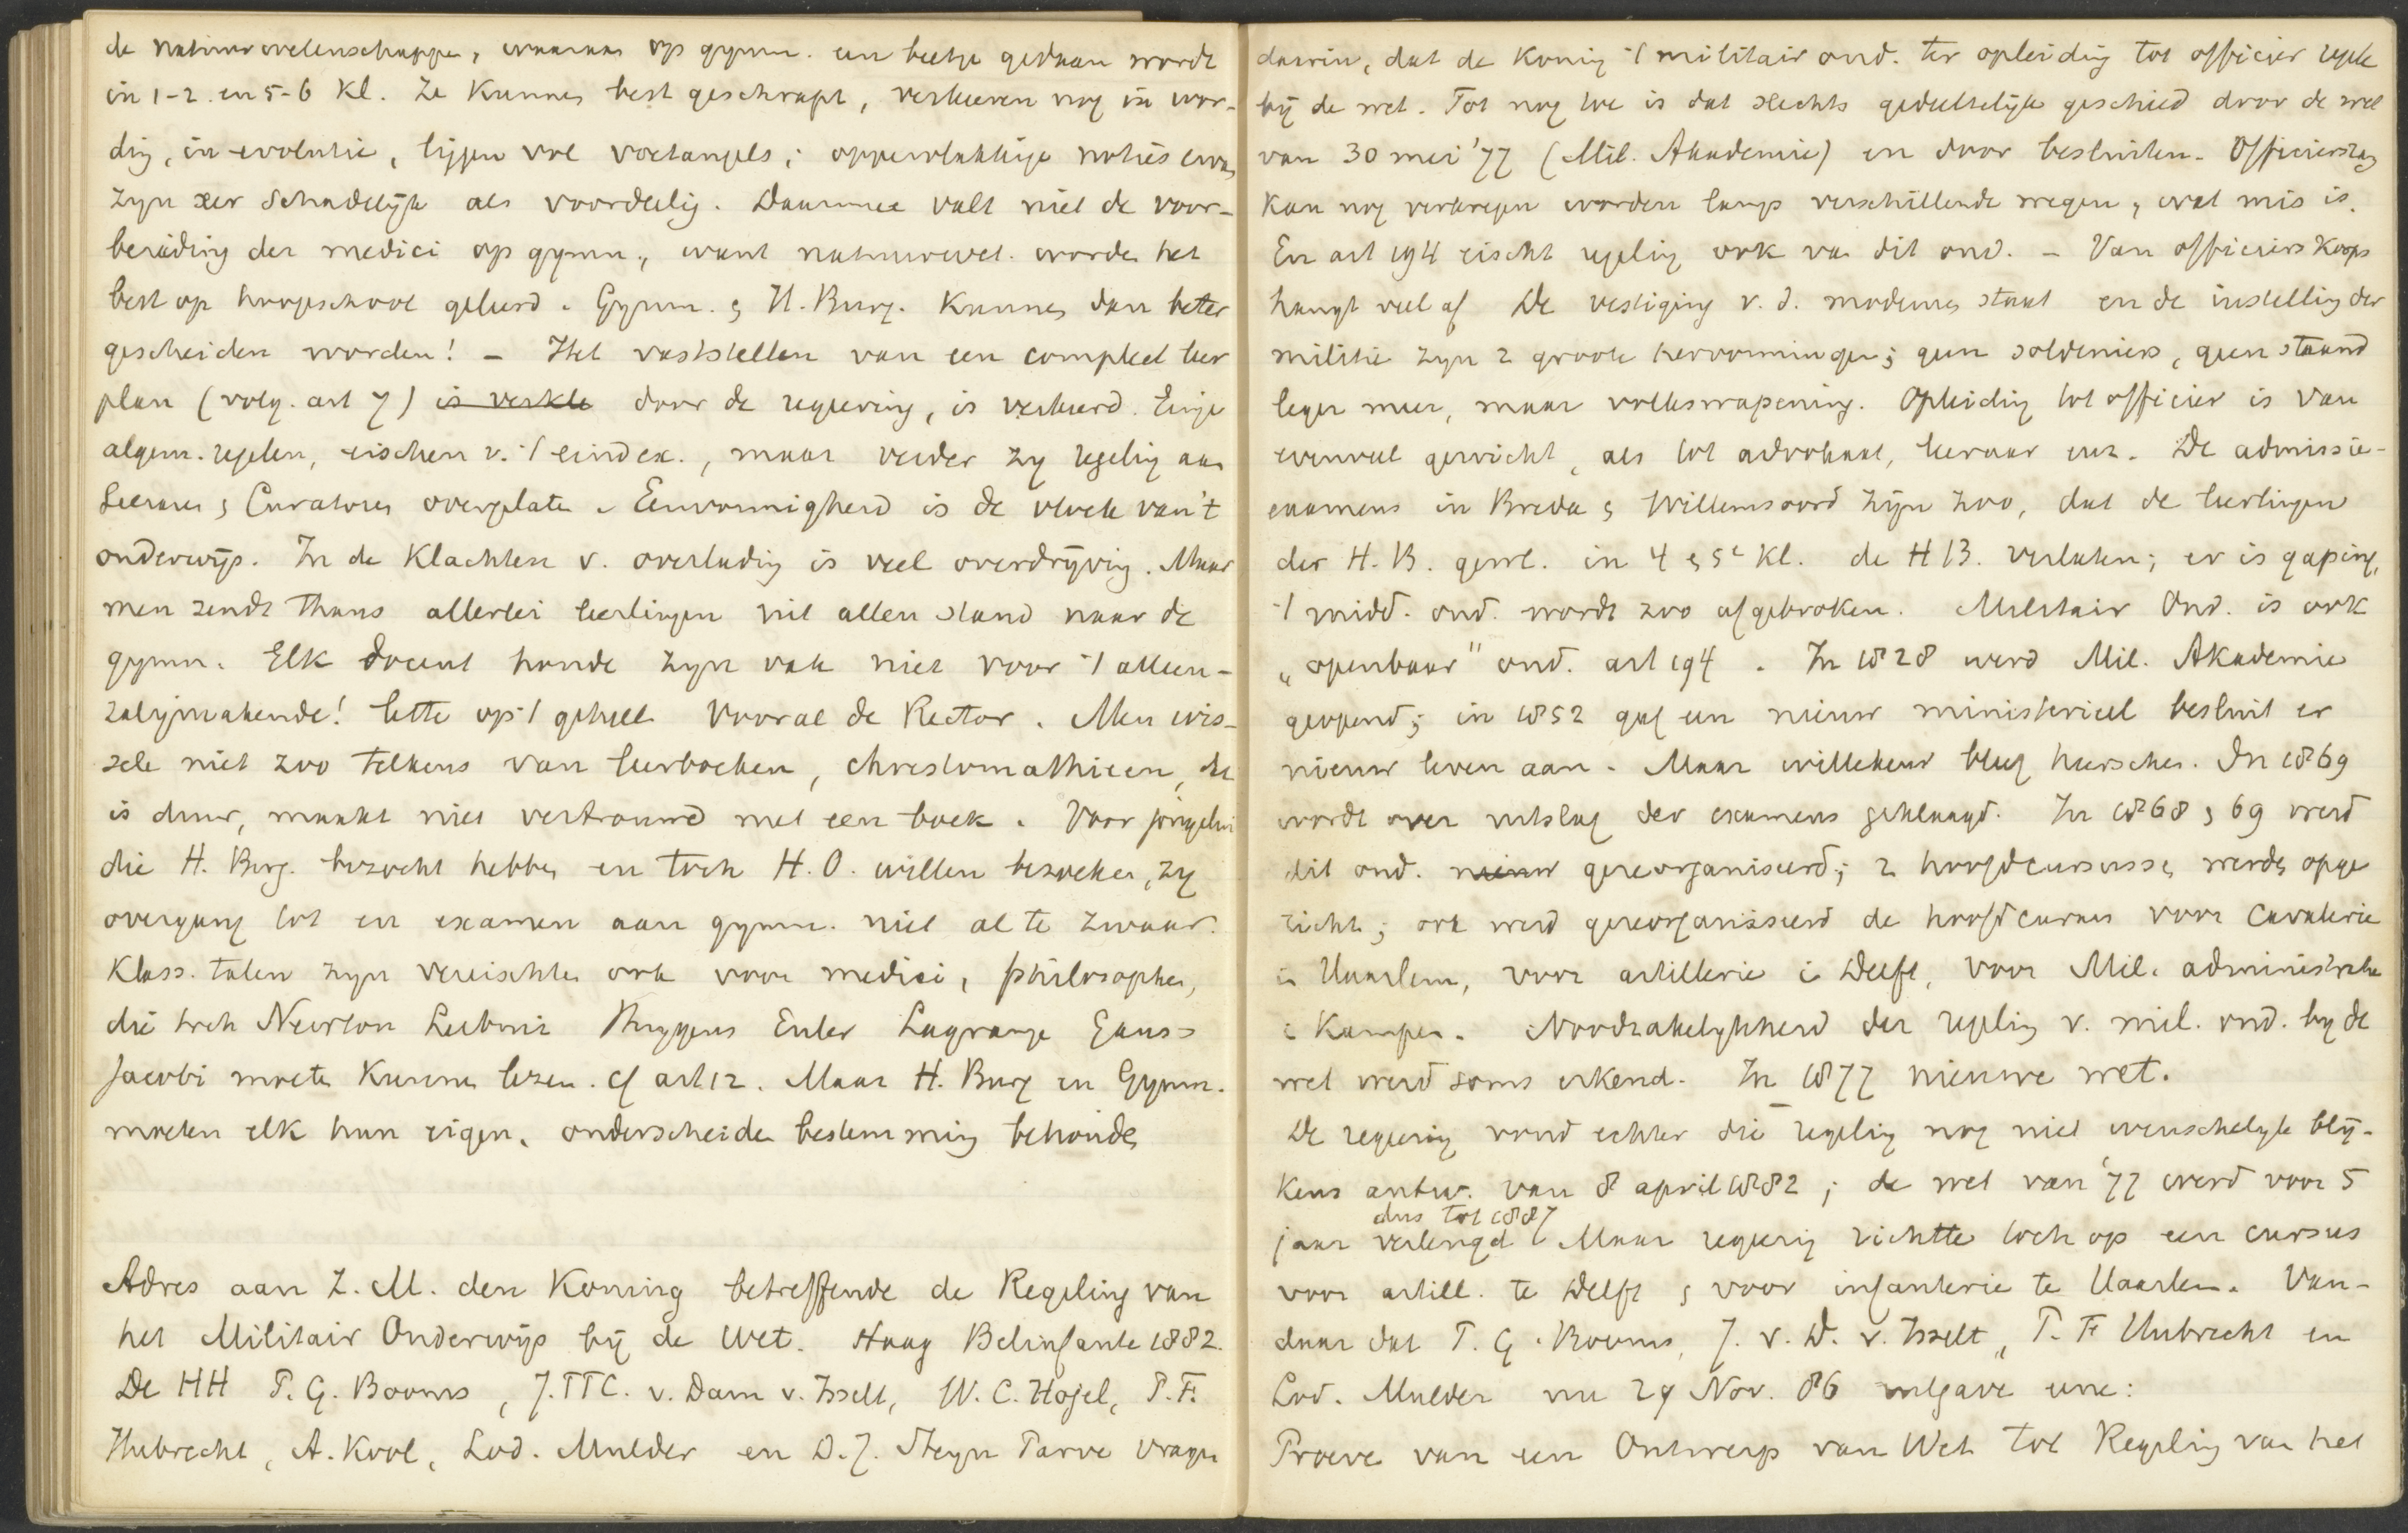 de natuurwetenschappen, waaraan op gymn. een beetje gedaan wordt
in 1-2. en 5-6 Kl. Ze Kunnen best geschrapt, verkeeren nog in wor-
ding, in evolutie, liggen vol voetangels; oppervlakkige noties ervan
zyn zeer schadelijk als voordeelig. Daarmee valt niet de voor-
bereiding der medici op gymn., want natuurwet. worden het
best op hoogeschool geleerd. Gymn. & H. Burg. Kunnen dan beter
gescheiden worden! – Het vaststellen van een compleet leer
plan (volg. art 7) is verkee door de regeering, is verkeerd. Enige
algem. regelen, eischen v. 't eindex., maar verder zy regeling aan
Leeraren & Curatoren overgelaten. Eenvormigheid is de vloek van 't
onderwijs. In de Klachten v. overlading is veel overdrijving. Maar
men zendt thans allerlei leerlingen uit allen stand naar de
gymn. Elk docent houde zyn vak niet voor 't alleen-
zaligmakende! lette op 't geheel. Vooral de Rector. Men wis-
sele niet zoo telkens van leerboeken, chrestomathieen, dat
is duur, maakt niet vertrouwd met een boek. Voor jongelui
die H. Burg. bezocht hebben en toch H.O. willen bezoeken, zy
overgang tot en examen aan gymn. niet al te zwaar.
Klass. talen zyn vereischten ook voor medici, philosophen,
die toch Newton Leibniz Huygens Euler Lagrange Gauss
Jacobi moeten Kunnen lezen. cf art 12. Maar H. Burg en Gymn.
moeten elk hun eigen, onderscheiden bestemming behouden
Adres aan Z. M. den Koning betreffende de Regeling van
het Militair Onderwijs bij de Wet. Haag Belinfante 1882.
De HH P. G. Booms, J. TTC. v. Dam v. Isselt, W. C. Hojel, P. F.
Hubrecht, A. Kool, Lod. Mulder en D. J. Steyn Parvé vragen
daarin, dat de Koning 't militair ond. ter opleiding tot officier regele
bij de wet. Tot nog toe is dat slechts gedeeltelijk geschied door de wet
van 30 mei '77 (Mil. Akademie) en door besluiten. Officiersrang
Kan nog verkregen worden langs verschillende wegen, wat mis is.
En art 194 eischt regeling ook van dit ond. – Van officiers Korps
hangt veel af. De vestiging v. d. moderne staat en de instelling der
militie zyn 2 groote hervormingen; geen soldeniers, geen staand
leger meer, maar volkswapening. Opleiding tot officier is van
evenveel gewicht, als tot advokaat, leeraar enz. De admissie-
examens in Breda & Willemsoord zijn zoo, dat de leerlingen
der H. B. gewl. in 4 & 5e Kl. de H B. verlaten; er is gaping,
't midd. ond. wordt zoo afgebroken. Militair Ond. is ook
„openbaar" ond. art 194. In 1828 werd Mil. Akademie
geopend; in 1852 gaf een nieuw ministerieel besluit er
nieuw leven aan. Maar willekeur bleef heerschen. In 1869
wordt over uitslag der examens geklaagd. In 1868 & 69 werd
dit ond. nieuw gereorganiseerd; 2 hoofdcursussen werden opge
richt; ook werd gereorganiseerd de hoofdcursus voor Cavalerie
in Haarlem, voor artillerie in Delft, voor Mil. administratie
in Kampen. Noodzakelykheid der regeling v. mil. ond. by de
wet werd soms erkend. In 1877 nieuwe wet.
De regering vond echter die regeling nog niet wenschelyk blij-
kens antw. van 8 april 1882; de wet van '77 werd voor 5
dus tot 1887
jaar verlengd Maar regering richtte toch op een cursus
voor artill. te Delft & voor infanterie te Haarlem. Van-
daar dat P. G. Booms, J. v. D. v. Isselt, P. F Hubrecht en
Lod. Mulder nu 29 Nov. 86 uitgave eene:
Proeve van een Ontwerp van Wet tot Regeling van het